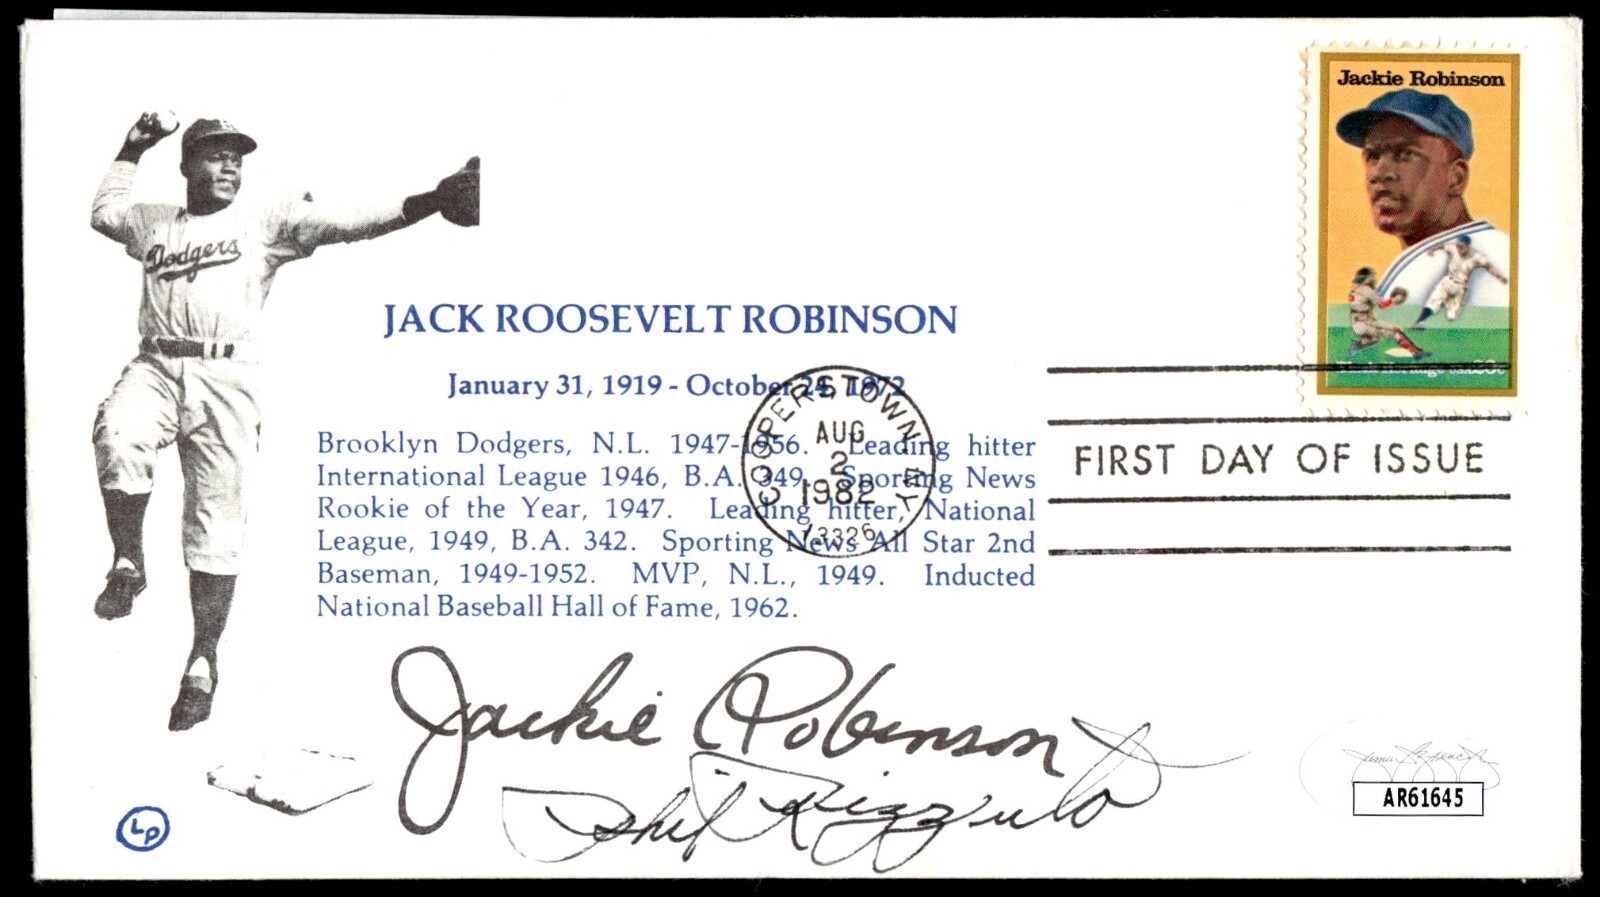 Jackie Robinson
Dodgers
JACK ROOSEVELT ROBINSON
January 31, 1919 - October 24, 1972
Brooklyn Dodgers, N.L. 1947-1956. Leading hitter
International League 1946, B.A. 349. Sporting News
Rookie of the Year, 1947. Leading hitter, National
League, 1949, B.A. 342. Sporting News All Star 2nd
Baseman, 1949-1952. MVP, N.L., 1949. Inducted
National Baseball Hall of Fame, 1962.
COOPERSTOWN, NY
AUG
2
1982
13326
FIRST DAY OF ISSUE
Jackie Robinson
Phil Rizzuto
AR61645
LP